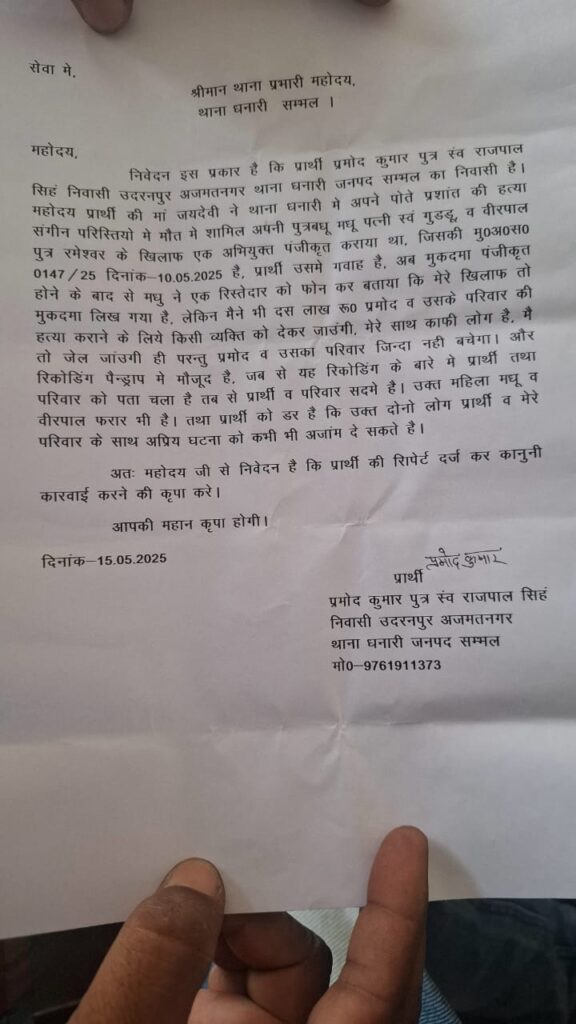 सेवा मे,
श्रीमान थाना प्रभारी महोदय,
थाना धनारी सम्भल ।
महोदय,
निवेदन इस प्रकार है कि प्रार्थी प्रमोद कुमार पुत्र स्ंव राजपाल
सिहं निवासी उदरनपुर अजमतनगर थाना धनारी जनपद सम्भल का निवासी है।
महोदय प्रार्थी की मां जयदेवी ने थाना धनारी मे अपने पोते प्रशांत की हत्या
संगीन परिस्तियो मे मौत मे शामिल अपनी पुत्रबधू मधू पत्नी स्वं गुडडू, व वीरपाल
पुत्र रमेश्वर के खिलाफ एक अभियुक्त पंजीकृत कराया था, जिसकी मु0अ0स0
0147/25 दिनांक–10.05.2025 है, प्रार्थी उसमे गवाह है, अब मुकदमा पंजीकृत
होने के बाद से मधु ने एक रिस्तेदार को फोन कर बताया कि मेरे खिलाफ तो
मुकदमा लिख गया है, लेकिन मैने भी दस लाख रू0 प्रमोद व उसके परिवार की
हत्या कराने के लिये किसी व्यक्ति को देकर जाउंगी, मेरे साथ काफी लोग है, मै
तो जेल जांउगी ही परन्तु प्रमोद व उसका परिवार जिन्दा नही बचेगा। और
रिकोडिंग पैन्ड्राप मे मौजूद है, जब से यह रिकोडिंग के बारे मे प्रार्थी तथा
परिवार को पता चला है तब से प्रार्थी व परिवार सदमे है। उक्त महिला मधू व
वीरपाल फरार भी है। तथा प्रार्थी को डर है कि उक्त दोनो लोग प्रार्थी व मेरे
परिवार के साथ अप्रिय घटना को कभी भी अजांम दे सकते है।
अतः महोदय जी से निवेदन है कि प्रार्थी की रिापेर्ट दर्ज कर कानुनी
कारवाई करने की कृपा करे।
आपकी महान कृपा होगी।
दिनांक–15.05.2025
प्रमोद कुमार
प्रार्थी
प्रमोद कुमार पुत्र स्ंव राजपाल सिहं
निवासी उदरनपुर अजमतनगर
थाना धनारी जनपद सम्भल
मो0–9761911373